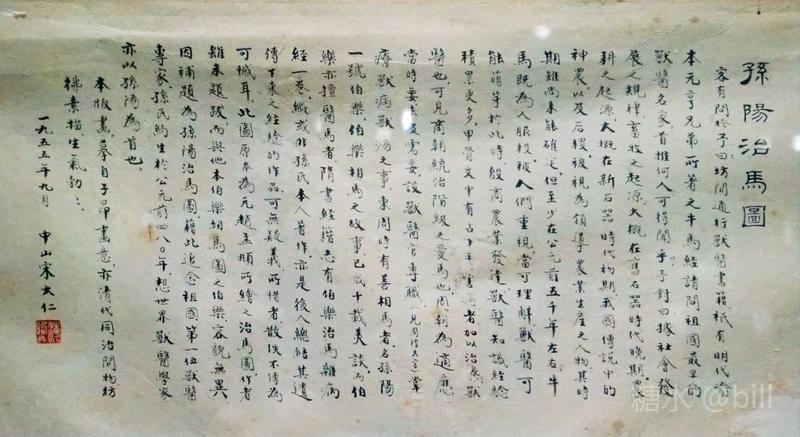 孫陽治馬圖
客有問於予曰坊間通行獸醫書籍祇有明代喻
本元亨兄弟所著之牛馬經請問祖國最早的
獸醫名家首推何人可得聞乎予對曰據社會發
展之規律畜牧之起源大概在舊石器時代晚期農
耕之起源大概在新石器時代初期我國傳說中的
神農以及后稷被視為領導農業生產之人物其時
期雖尚未能確定但至少在公元前五千年左右牛
馬既為人服役被人們重視當可理解獸醫可
能萌芽於此時殷商農業發達獸醫知識經驗
積累更多甲骨文中有占卜年害病者加以治療獸
醫也可見商朝統治階級之愛馬也周朝為適應
當時要求及需要設獸醫官專職見周禮天官掌
療獸病獸瘍之事東周時有善相馬者名孫陽
一號伯樂伯樂相馬之故事已成千載美談而伯
樂亦擅醫馬者隋書經籍志有伯樂治馬雜病
經一卷縱或非孫氏本人著作亦是後人總結其遺
傳下來之經驗的作品可無疑義所惜者散佚不傳為
可憾耳此圖原本為元趙孟頫所繪之治馬圖作者
雖未題跋而與他本伯樂相馬圖之伯樂容貌無異
因補題為孫陽治馬圖藉此追念祖國第一位獸醫
專家孫氏約生於公元前四八〇年想世界獸醫學家
亦以孫陽為首也
本版畫摹自子昂畫意亦清代同治間物坊
拂素描生氣勃々
一九五五年九月 中山宋大仁
糖水 @bill